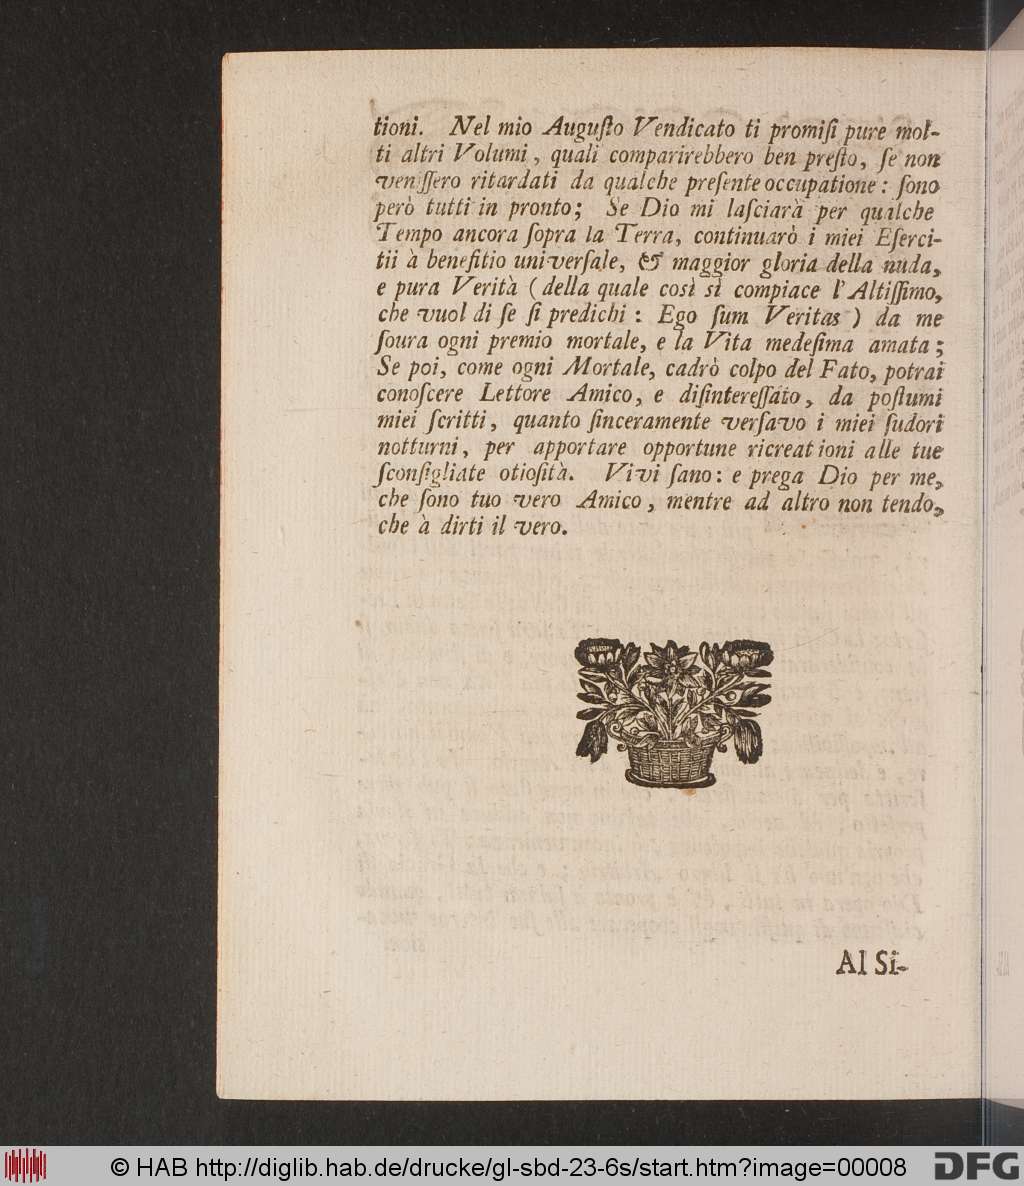 tioni. Nel mio Auguſto Vendicato ti promiſi pure mol-
ti altri Volumi, quali comparirebbero ben preſto, ſe non
veniſſero ritardati da qualche preſente occupatione: ſono
però tutti in pronto; Se Dio mi laſciarà per qualche
Tempo ancora ſopra la Terra, continuarò i miei Eſerci-
tii à benefitio univerſale, & maggior gloria della nuda,
e pura Verità (della quale così sì compiace l'Altiſſimo,
che vuol di ſe ſi predichi: Ego ſum Veritas) da me
ſoura ogni premio mortale, e la Vita medeſima amata;
Se poi, come ogni Mortale, cadrò colpo del Fato, potrai
conoſcere Lettore Amico, e diſintereſſato, da poſtumi
miei ſcritti, quanto ſinceramente verſavo i miei ſudori
notturni, per apportare opportune ricreationi alle tue
ſconſigliate otioſità. Vivi ſano: e prega Dio per me,
che ſono tuo vero Amico, mentre ad altro non tendo,
che à dirti il vero.
Al Si-
© HAB http://diglib.hab.de/drucke/gl-sbd-23-6s/start.htm?image=00008
DFG